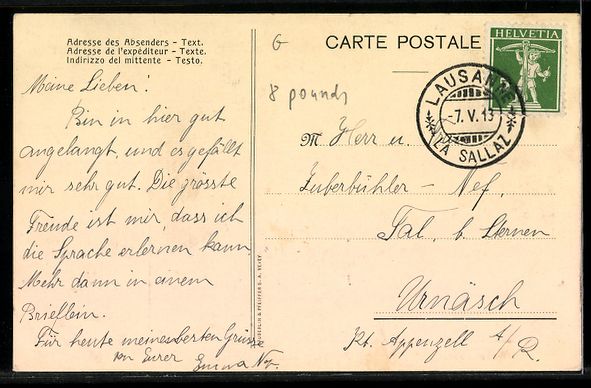 Adresse des Absenders - Text.
Adresse de l'expéditeur - Texte.
Indirizzo del mittente - Testo.
CARTE POSTALE
HELVETIA
LAUSANNE
-7.V.13
LA SALLAZ
G
8 pounds
Meine Lieben!
Bin in hier gut
angelangt, und es gefällt
mir sehr gut. Die grösste
Freude ist mir, dass ich
die Sprache erlernen kann.
Mehr dann in einem
Brieflein.
Für heute meine besten Grüsse
von Eurer
Emma
M Herr u.
Zuberbühler - Nef,
Tal, b. Sternen
Urnäsch
Kt. Appenzell A/R.